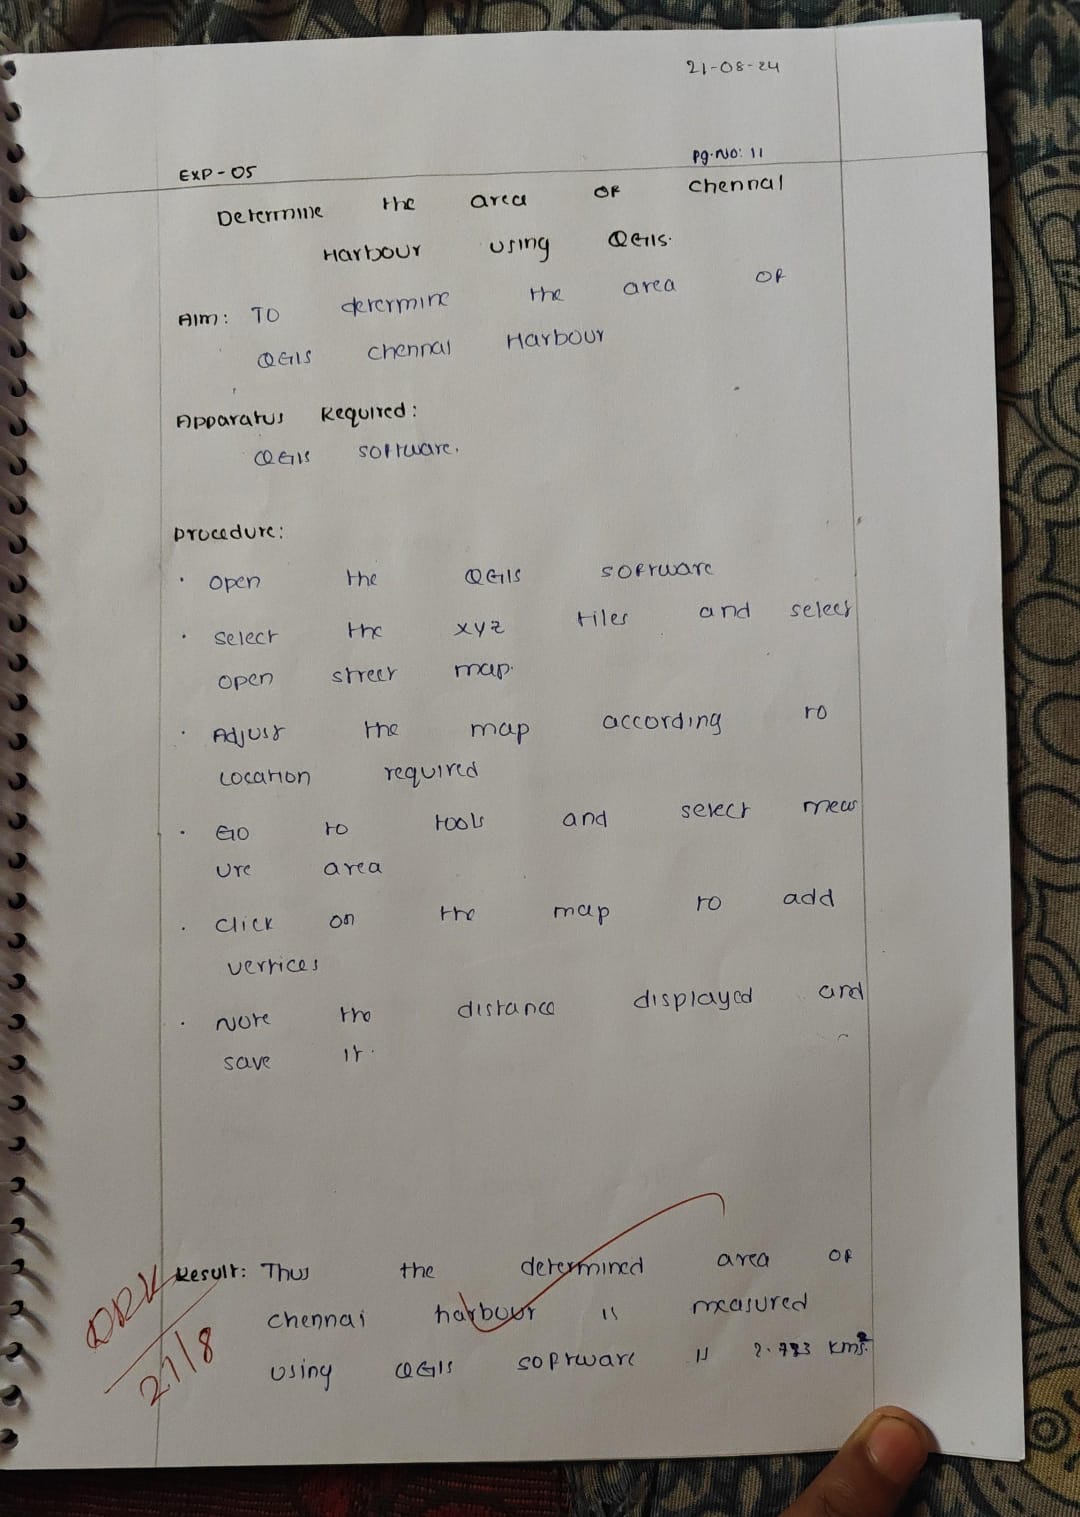 21-08-24
EXP-05
pg.No: 11
Determine the area of chennai
Harbour using QGIS.
Aim: To determine the area of
QGIS chennai Harbour
Apparatus Required:
QGIS software.
procedure:
· open the QGIS software
· select the xyz tiles and select
open street map.
· Adjust the map according to
location required
· Go to tools and select meas
ure area
· click on the map to add
vertices
· Note the distance displayed and
save it.
Result: Thus the determined area of
chennai harbour is measured
using QGIS software is kms².
27/8